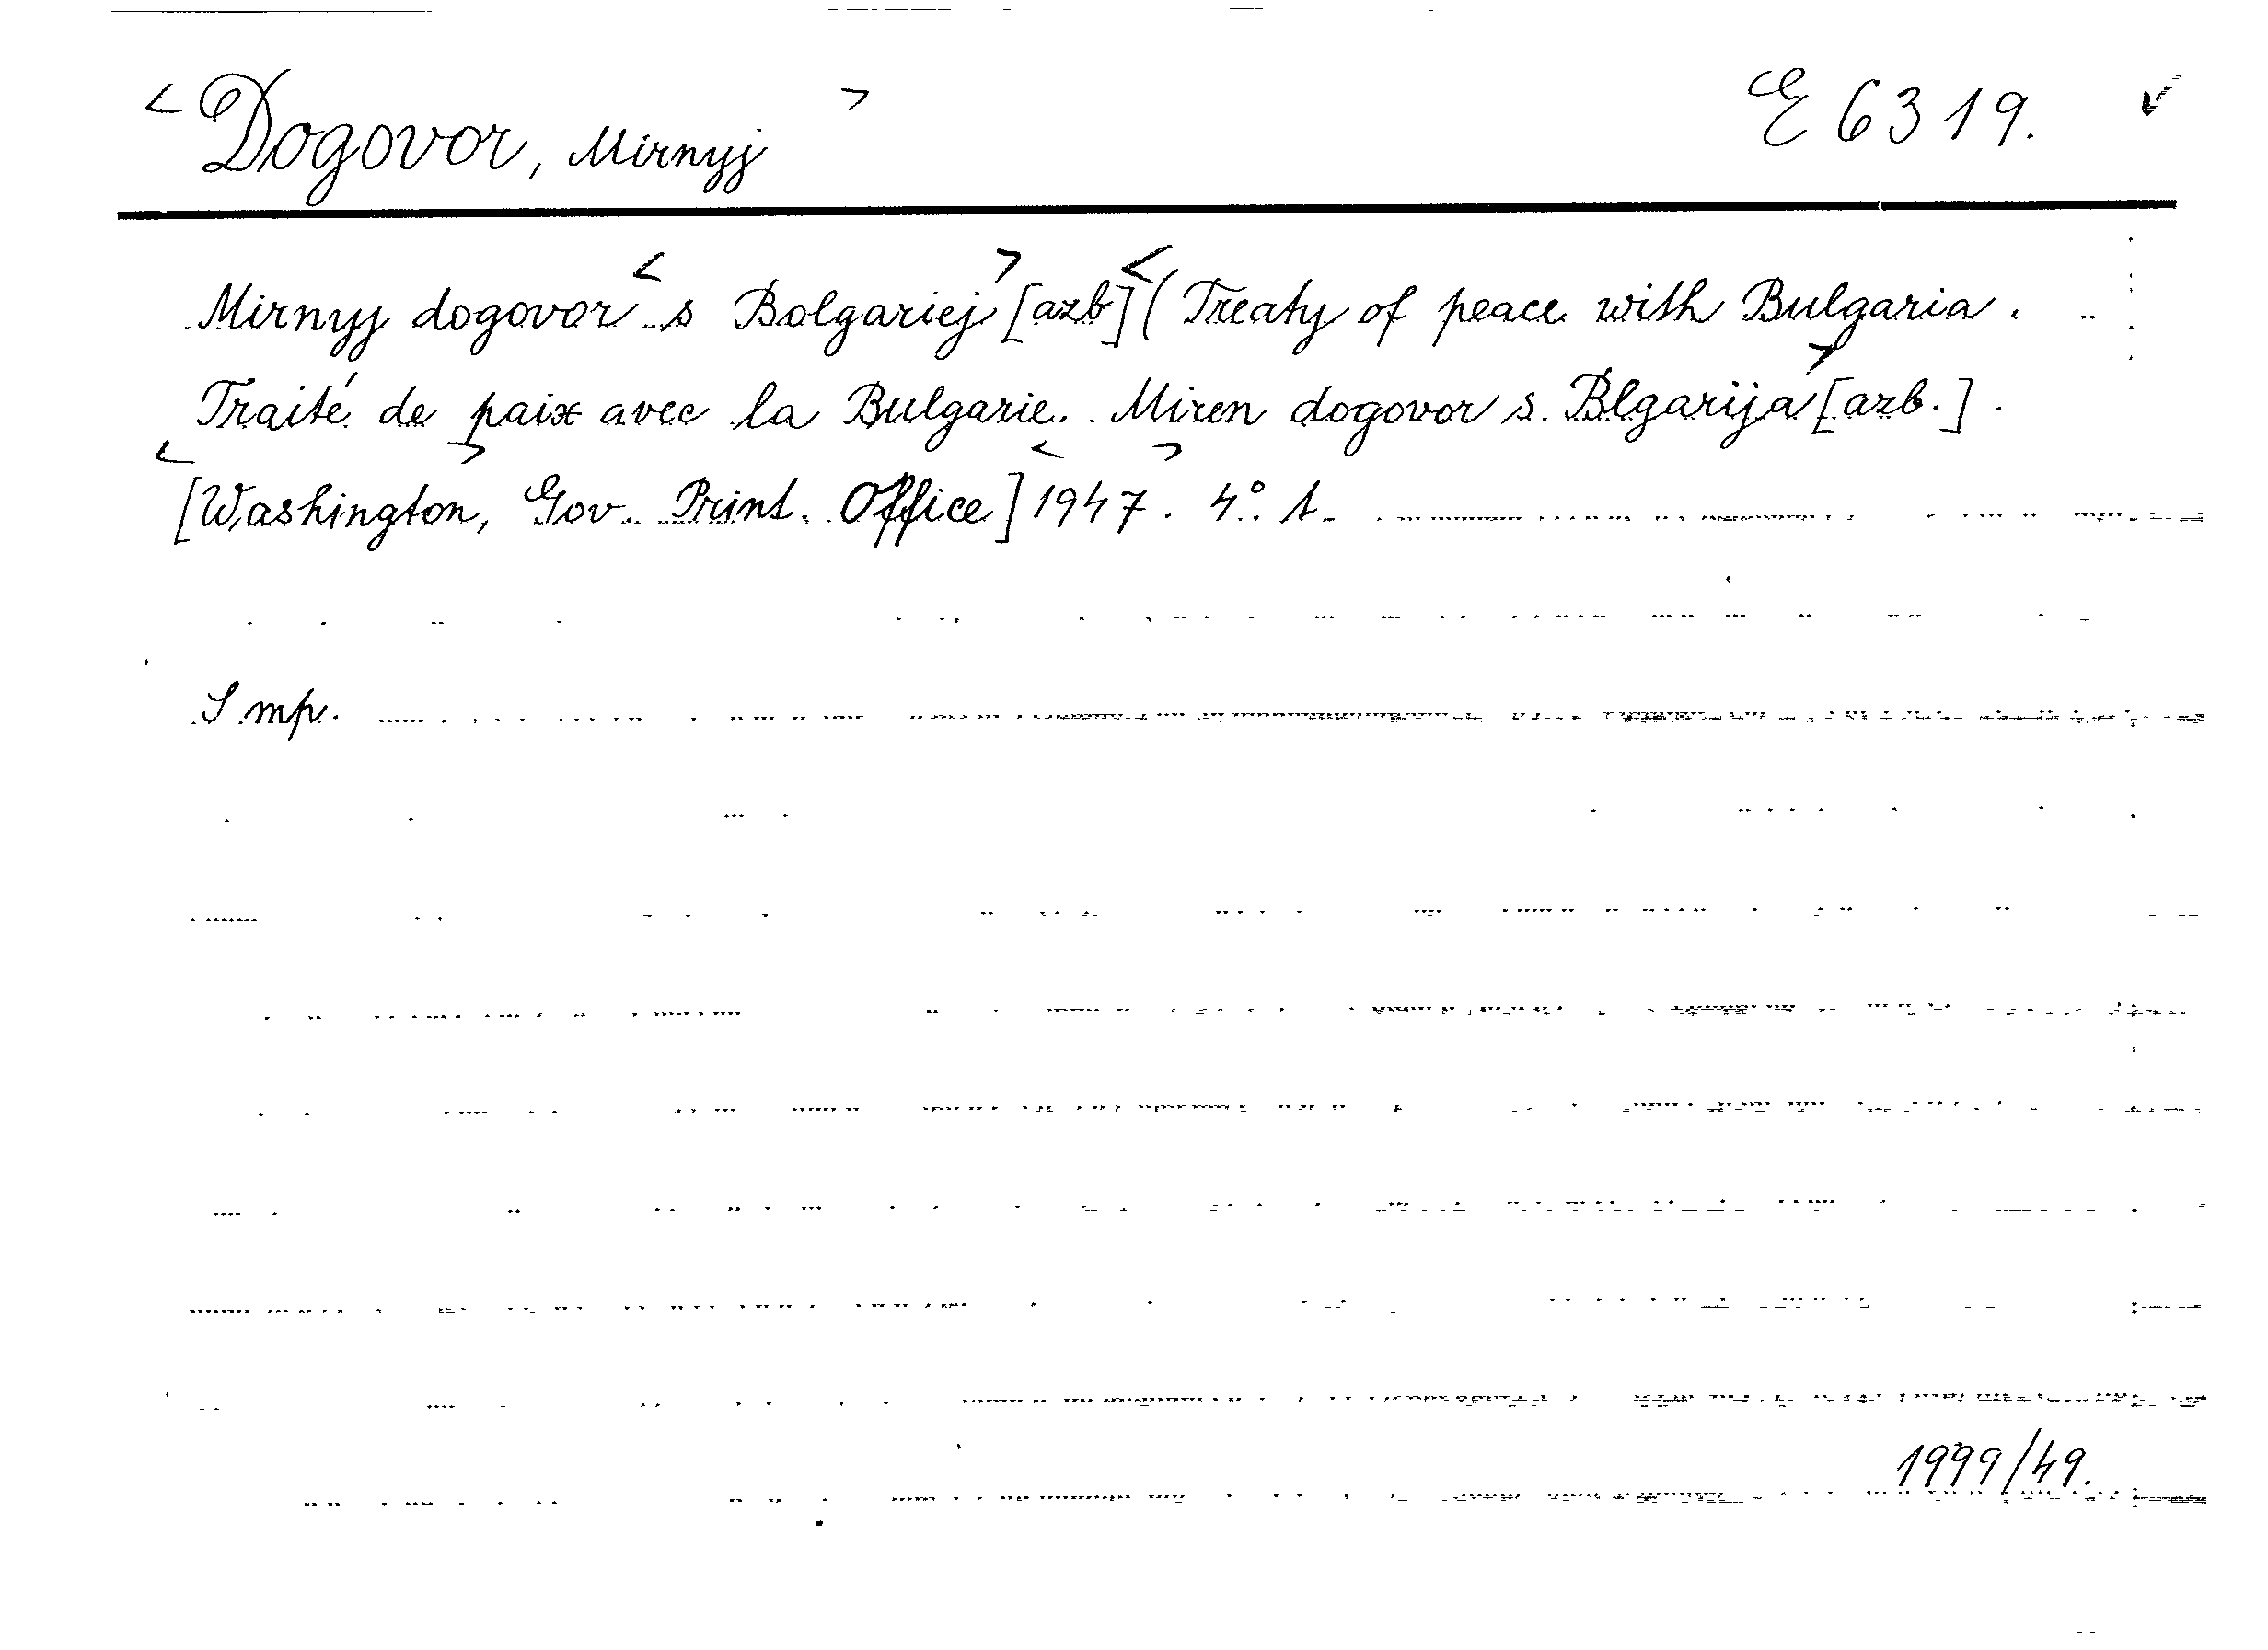 < Dogovor, Mirnyj > E 6319. ✓
Mirnyj dogovor < s Bolgariej > [azb] < (Treaty of peace with Bulgaria.
Traité de paix avec la Bulgarie. Miren dogovor s. Blgarija > [azb.].
< [Washington >, Gov. Print. Office] < 1947 >. 4° t.
S mp.
1999/49.